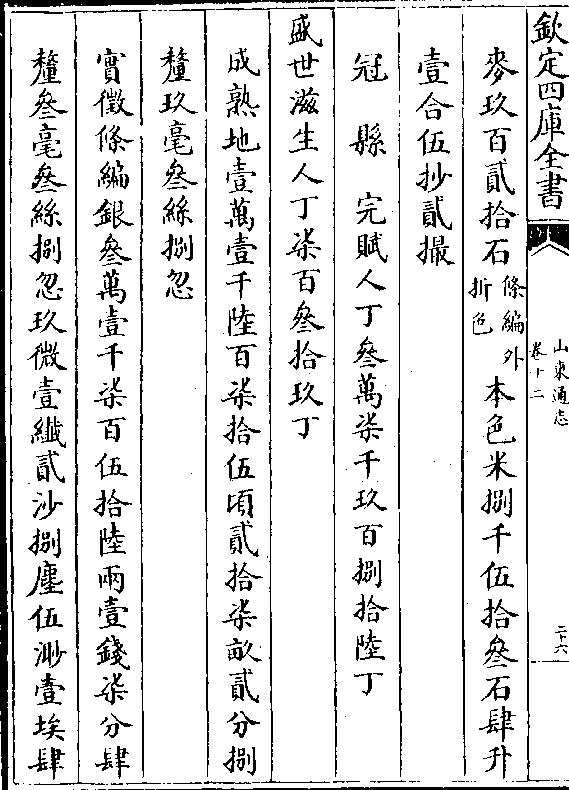 欽定四庫全書
山東通志
卷十二
二十六
麥玖百貳拾石條編外折色本色米捌千伍拾叄石肆升
壹合伍抄貳撮
冠縣完賦人丁叄萬柒千玖百捌拾陸丁
盛世滋生人丁柒百叄拾玖丁
成熟地壹萬壹千陸百柒拾伍頃貳拾柒畝貳分捌
釐玖毫叄絲捌忽
實徵條編銀叄萬壹千柒百伍拾陸兩壹錢柒分肆
釐叄毫叄絲捌忽玖微壹纖貳沙捌塵伍渺壹埃肆